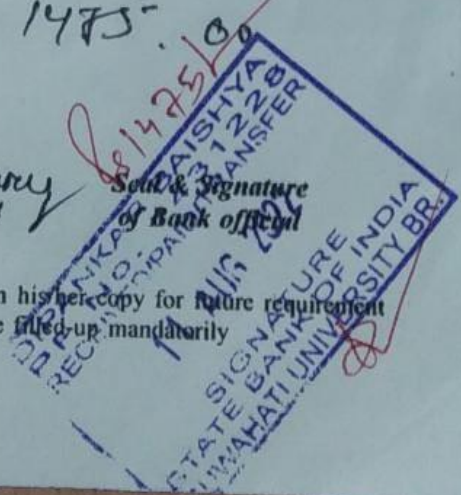 1475.00
1475/
Seal & Signature
of Bank official
his/her copy for future requirement
filled-up mandatorily
DIPANKAR BAISHYA
P.F. NO.- 431228
RECV/PAID/TRANSFER
AUG
SIGNATURE
STATE BANK OF INDIA
UWAHATI UNIVERSITY BR.